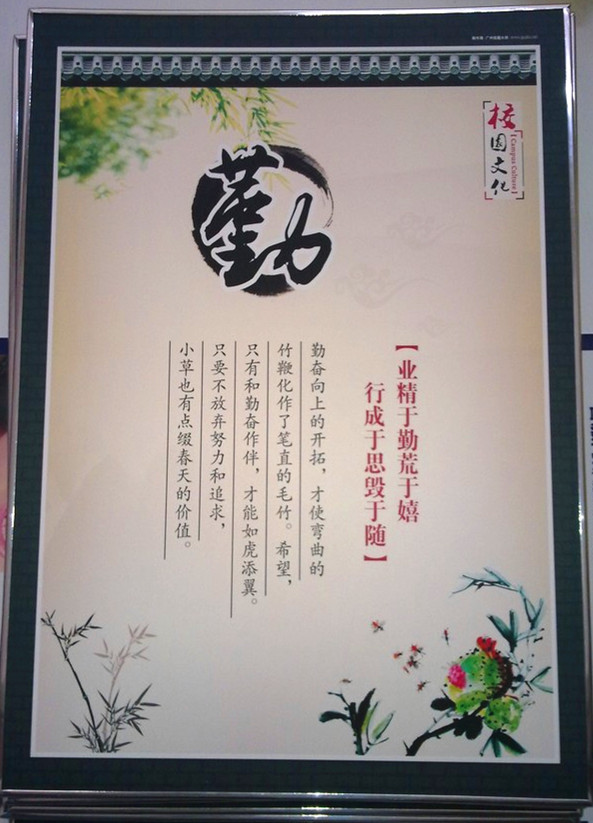 校园文化
Campus Culture
勤
【业精于勤荒于嬉
行成于思毁于随】
勤奋向上的开拓，才使弯曲的
竹鞭化作了笔直的毛竹。希望，
只有和勤奋作伴，才能如虎添翼。
只要不放弃努力和追求，
小草也有点缀春天的价值。